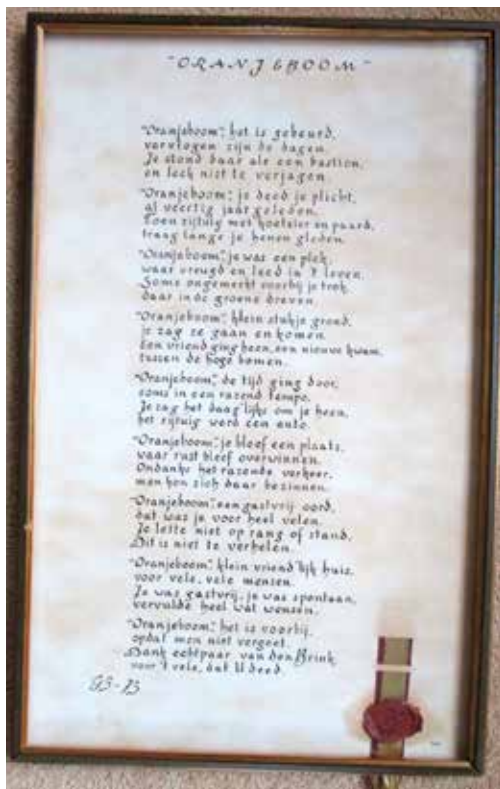 "ORANJEBOOM"
"Oranjeboom", het is gebeurd,
vervlogen zijn de dagen.
Je stond daar als een bastion,
en leek niet te verjagen.
"Oranjeboom", je deed je plicht,
al veertig jaar geleden.
Toen rijtuig met koetsier en paard,
traag langs je henen gleden.
"Oranjeboom", je was een plek,
waar vreugd en leed in 't leven.
Soms ongemerkt voorbij je trok
daar in de groene dreven.
"Oranjeboom", klein stukje grond,
je zag ze gaan en komen.
Een vriend ging heen, een nieuwe kwam,
tussen de hoge bomen.
"Oranjeboom", de tijd ging door,
soms in een razend tempo.
Je zag het daag'lijks om je heen,
het rijtuig werd een auto.
"Oranjeboom", je bleef een plaats,
waar rust bleef overwinnen.
Ondanks het razende verkeer,
men kon zich daar bezinnen.
"Oranjeboom", een gastvrij oord,
dat was je voor heel velen.
Je lette niet op rang of stand,
Dit is niet te verhelen.
"Oranjeboom", klein vriend'lijk huis,
voor vele, vele mensen.
Je was gastvrij, je was spontaan,
vervulde heel wat wensen.
"Oranjeboom", het is voorbij,
opdat men niet vergeet.
Dank echtpaar van den Brink
voor 't vele, dat U deed.